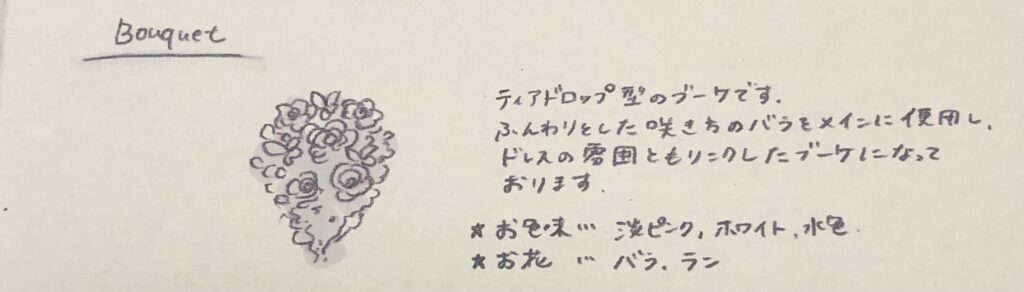 Bouquet
ティアドロップ型のブーケです.
ふんわりとした咲き方のバラをメインに使用し、
ドレスの雰囲ともリンクしたブーケになって
おります.
★お色味… 淡ピンク、ホワイト、水色.
★お花 … バラ、ラン